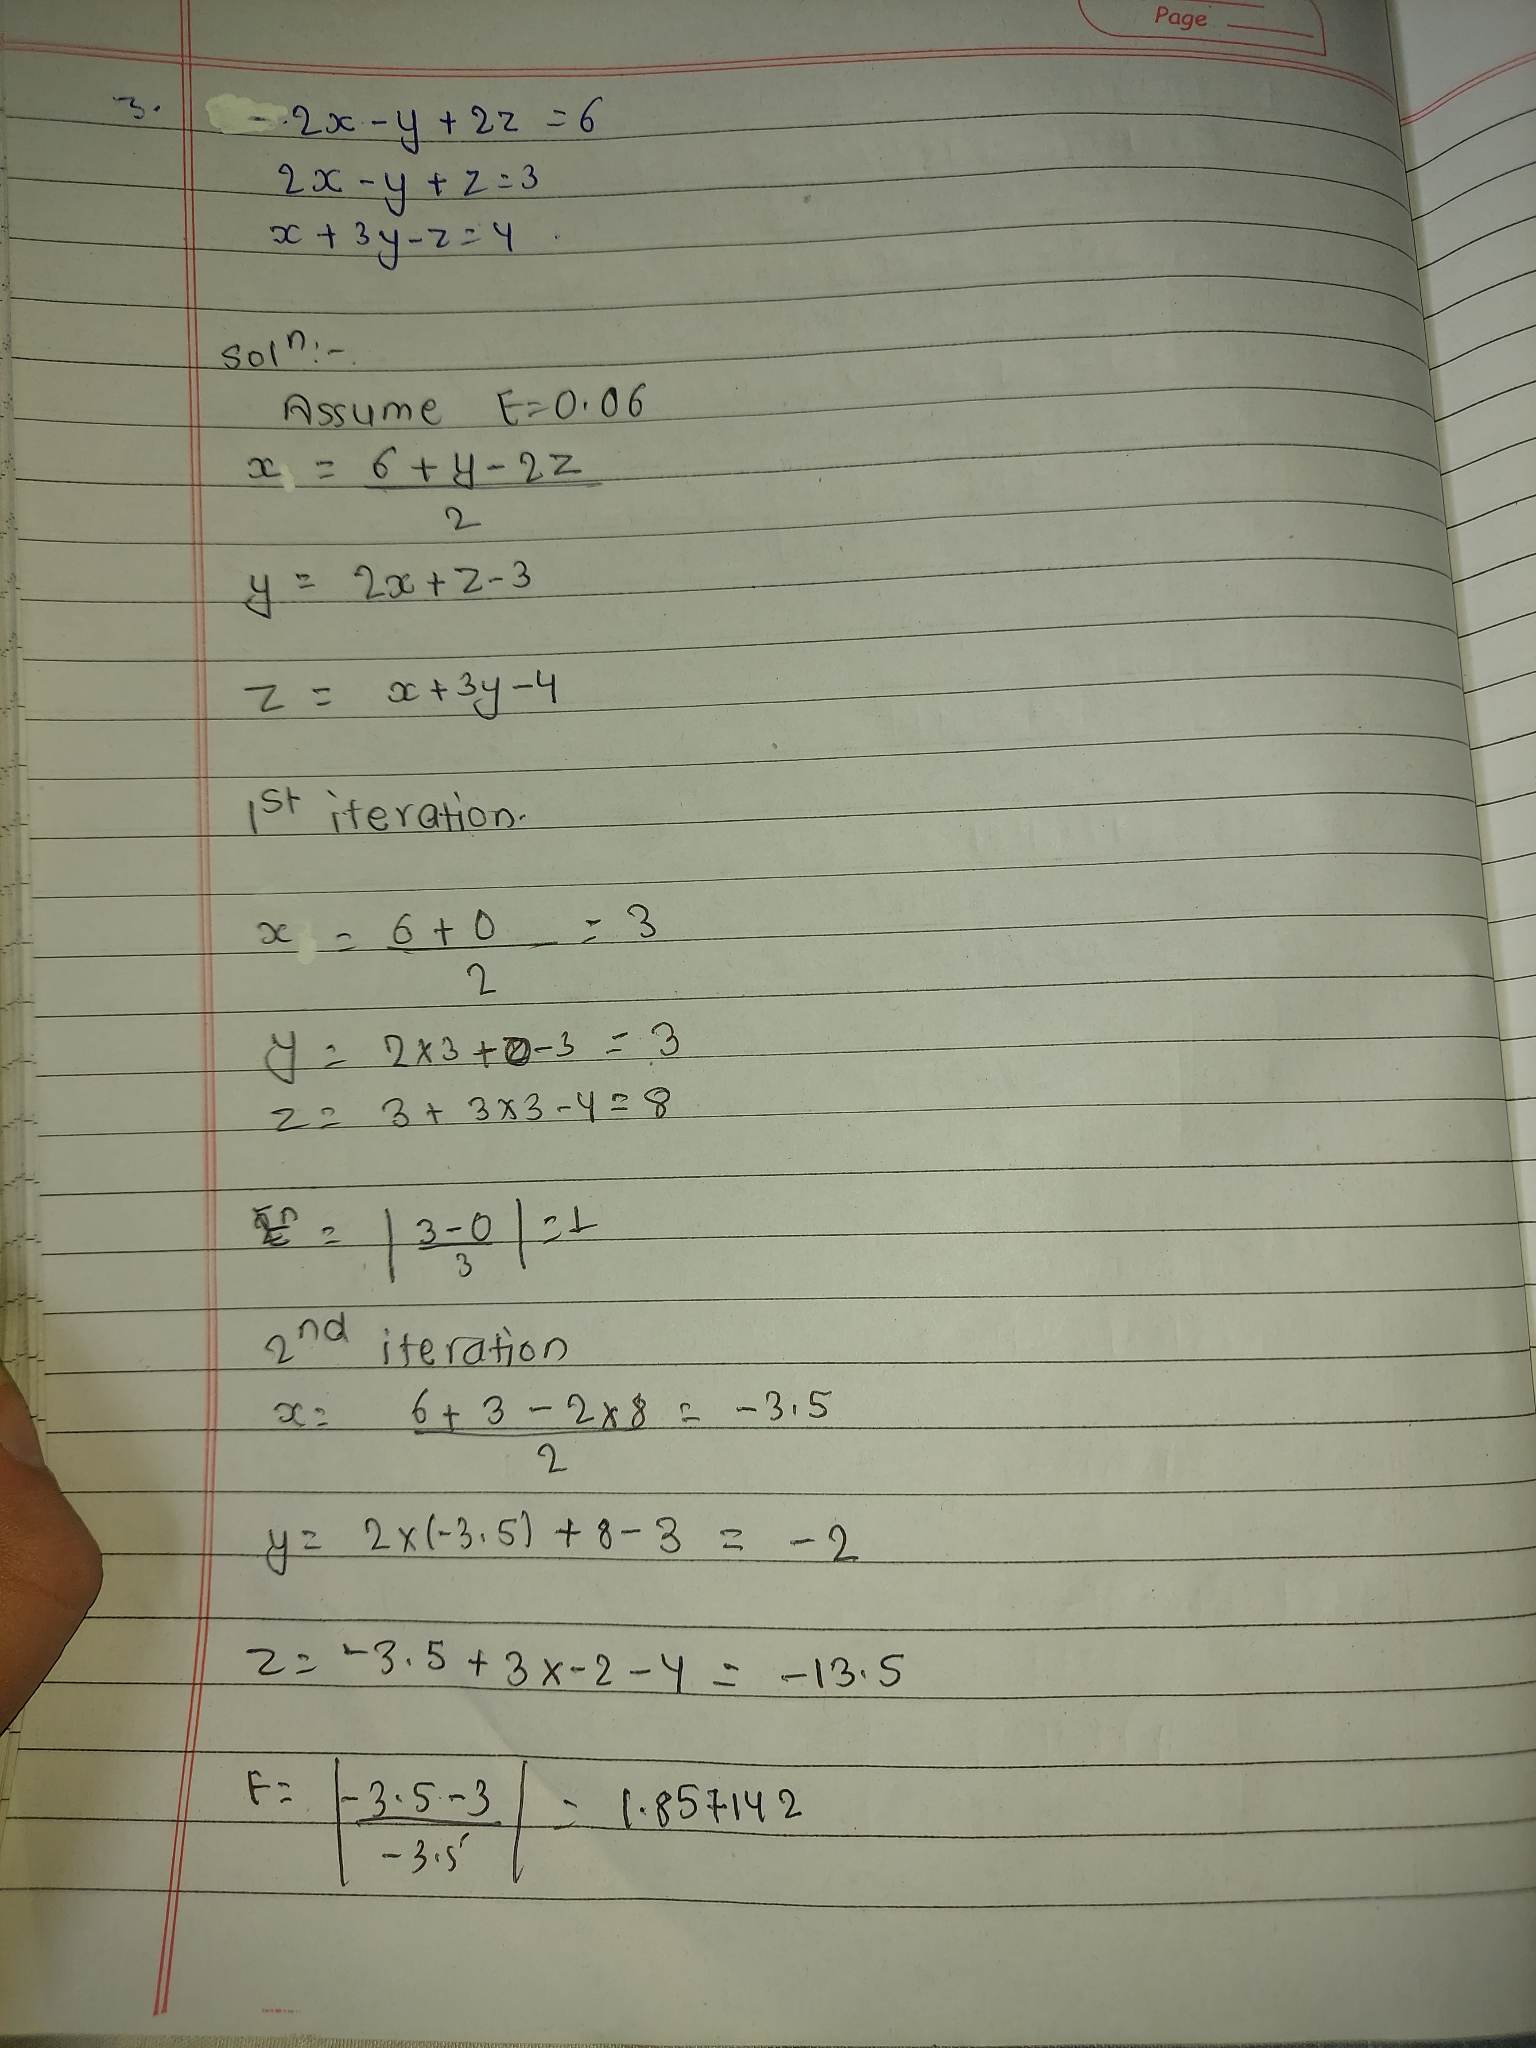 Page
3. - 2x - y + 2z = 6
2x - y + z = 3
x + 3y - z = 4
Solⁿ:-
Assume E=0.06
x = 6 + y - 2z
2
y = 2x + z - 3
z = x + 3y - 4
1st iteration.
x = 6 + 0 = 3
2
y = 2×3 + 0 - 3 = 3
z = 3 + 3×3 - 4 = 8
= | 3 - 0 | = 1
3
2nd iteration
x = 6 + 3 - 2×8 = -3.5
2
y = 2×(-3.5) + 8 - 3 = -2
z = -3.5 + 3×-2 - 4 = -13.5
E = | -3.5 - 3 | = 1.857142
-3.5